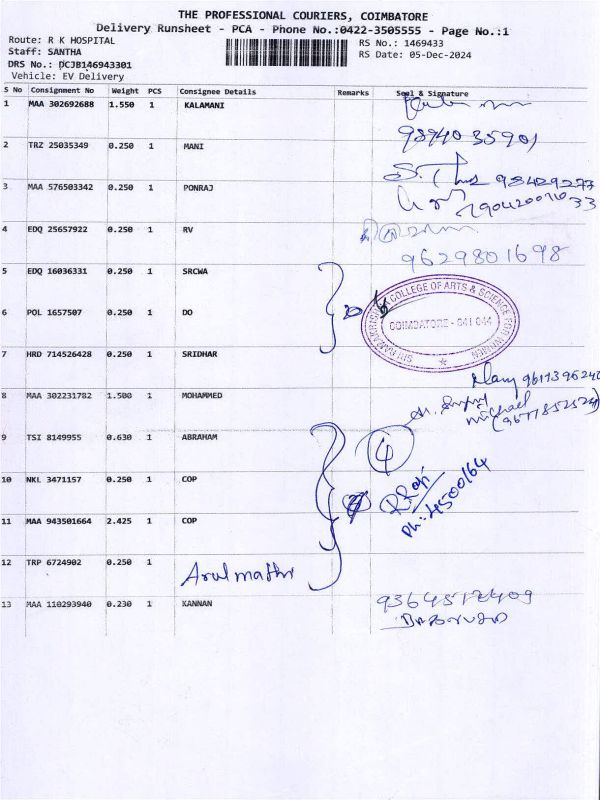 THE PROFESSIONAL COURIERS, COIMBATORE
Delivery Runsheet - PCA - Phone No.:0422-3505555 - Page No.:1
Route: R K HOSPITAL
Staff: SANTHA
DRS No.: DCJB146943301
Vehicle: EV Delivery
RS No.: 1469433
RS Date: 05-Dec-2024
S No Consignment No Weight PCS Consignee Details Remarks Seal & Signature
1 MAA 302692688 1.550 1 KALAMANI
98940 35901
2 TRZ 25035349 0.250 1 MANI
3 MAA 576503342 0.250 1 PONRAJ
4 EDQ 25657922 0.250 1 RV
9629801698
5 EDQ 16036331 0.250 1 SRCWA
6 POL 1657507 0.250 1 DO
SRI RAMAKRISHNA COLLEGE OF ARTS & SCIENCE FOR WOMEN
COIMBATORE - 641 044
7 HRD 714526428 0.250 1 SRIDHAR
8 MAA 302231782 1.500 1 MOHAMMED
Michael
9 TSI 8149955 0.630 1 ABRAHAM
4
10 NKL 3471157 0.250 1 COP
Ph: 4500164
11 MAA 943501664 2.425 1 COP
12 TRP 6724902 0.250 1 Arulmathi
13 MAA 110293940 0.230 1 KANNAN
9364512409